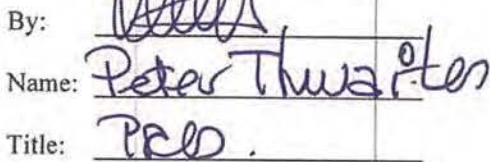 By:
Name: Peter Thwaites
Title: Pres.